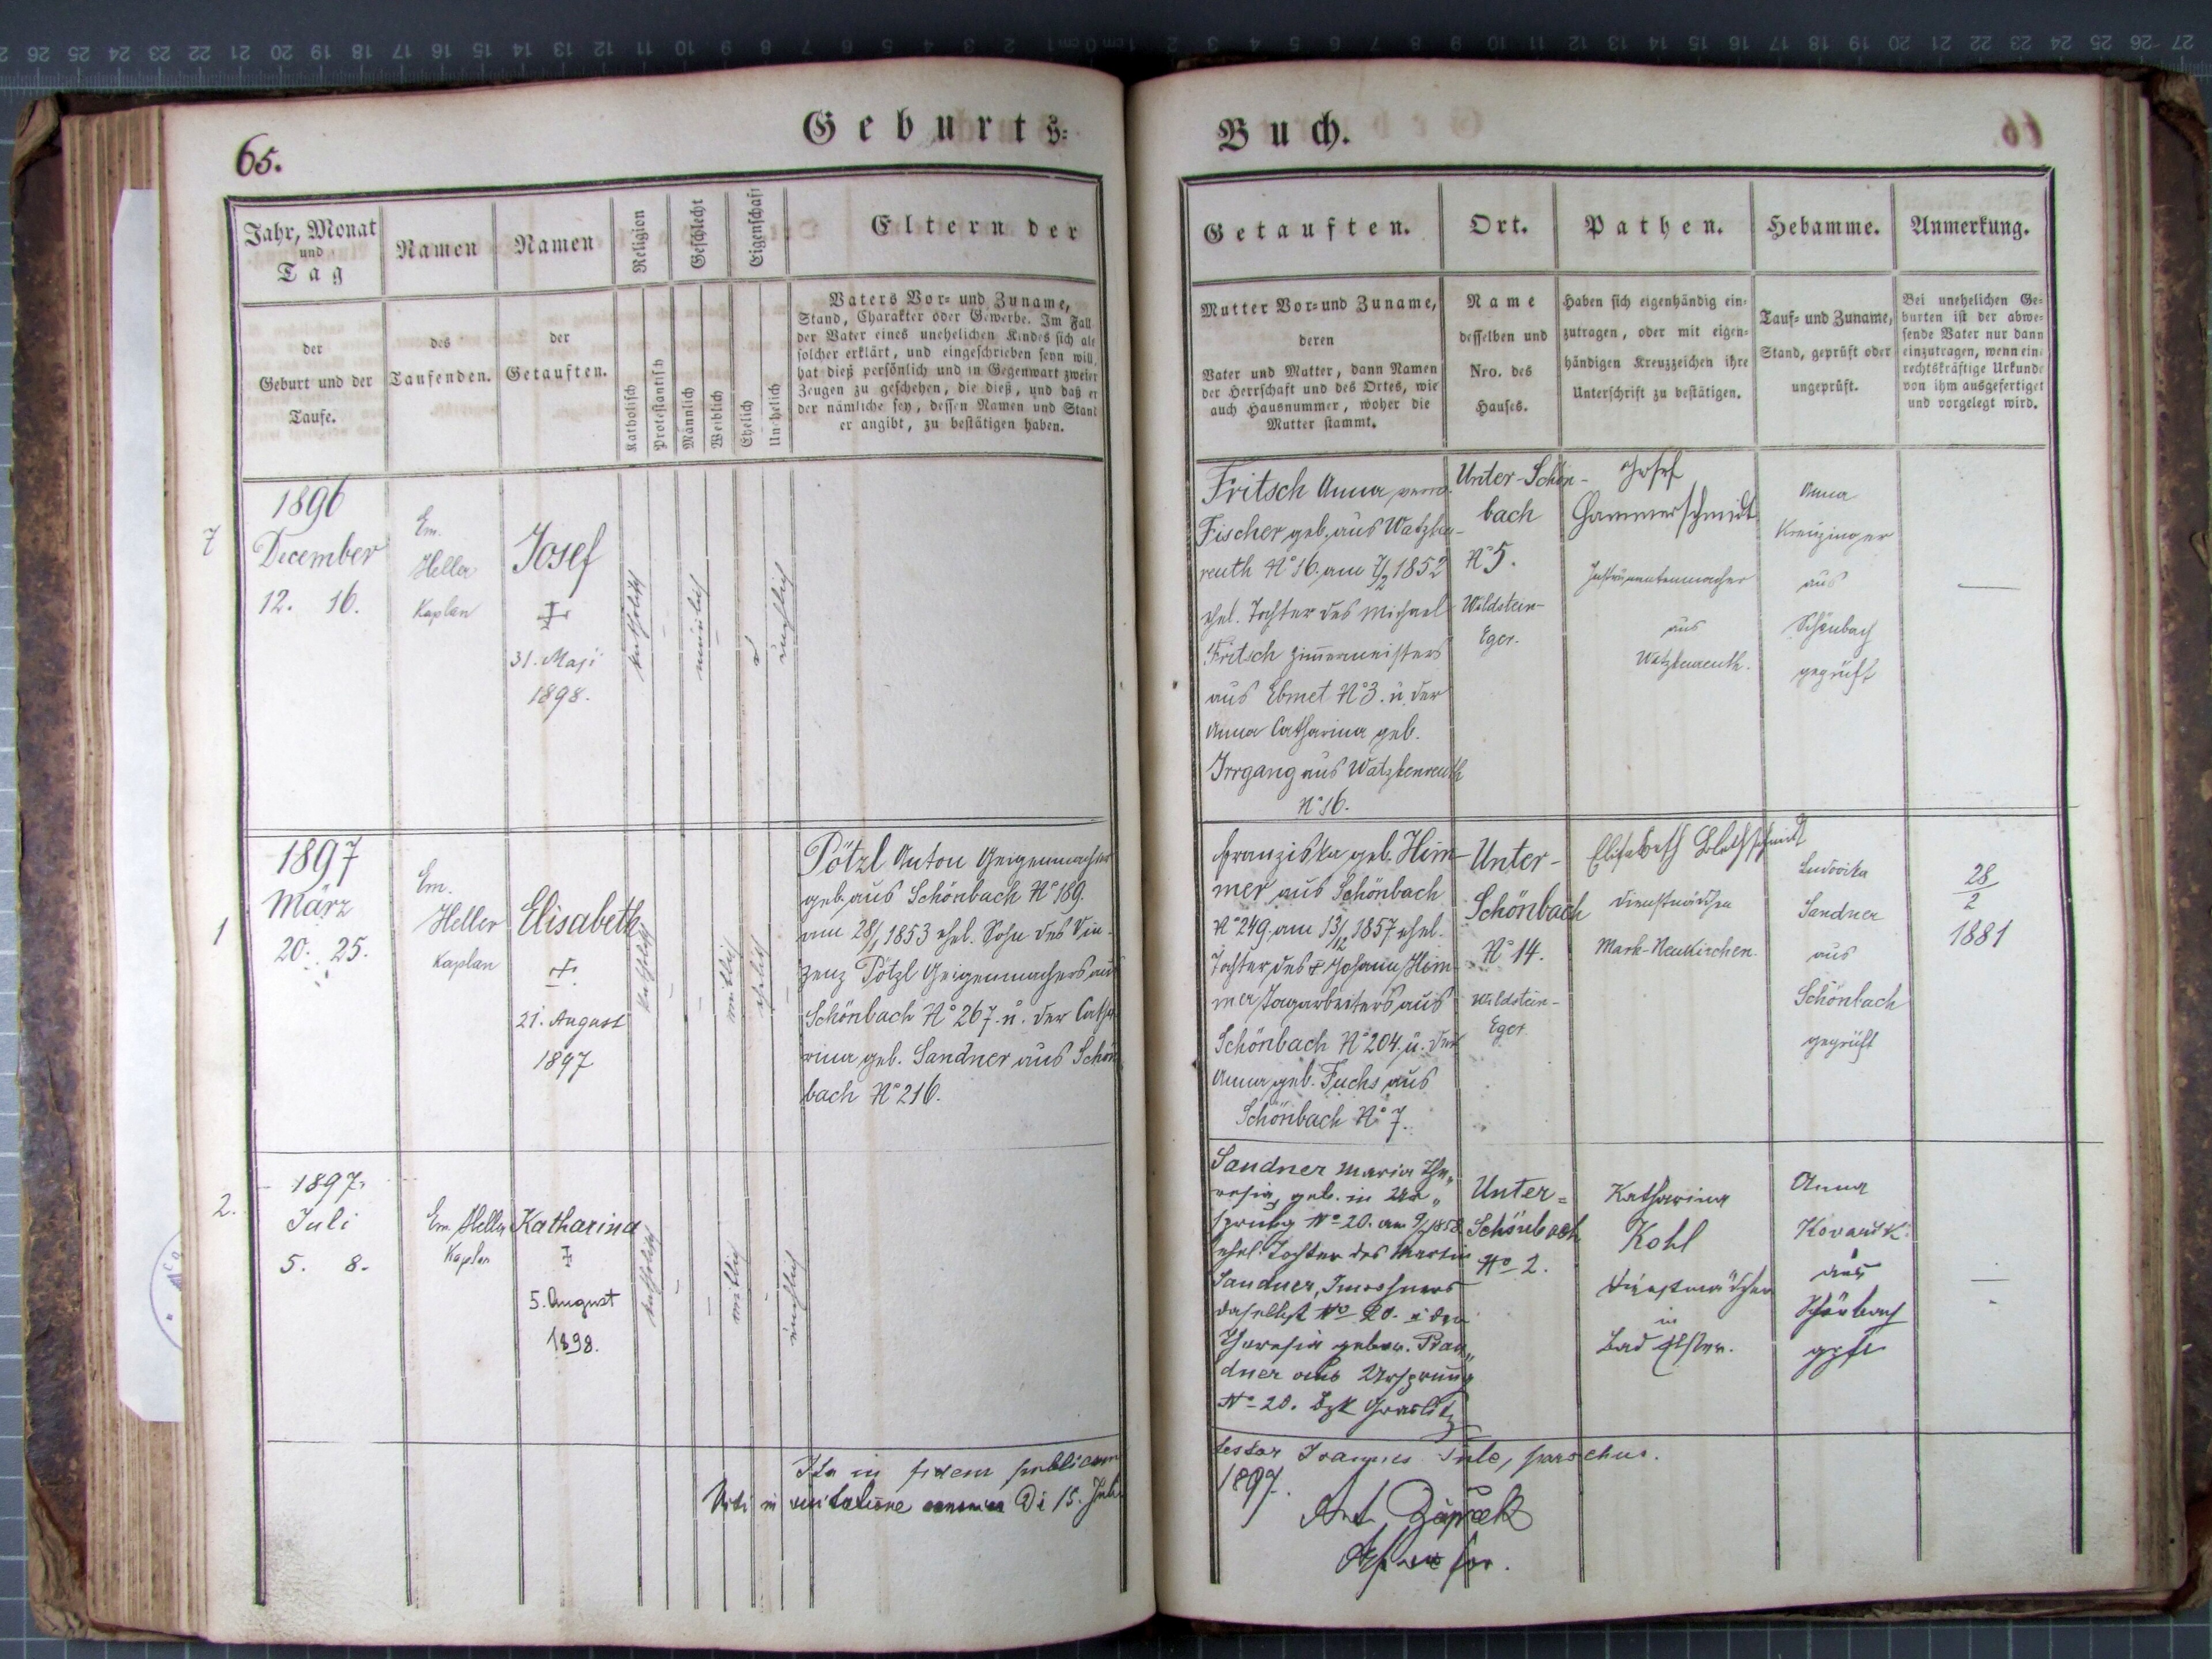 65.
Geburts-
Buch.
Jahr, Monat
und
Tag
der
Geburt und der
Taufe.
Namen
des
Taufenden.
Namen
der
Getauften.
Religion
Katholisch
Protestantisch
Geschlecht
Männlich
Weiblich
Eigenschaft
Ehelich
Unehelich
Eltern der
Vaters Vor- und Zuname,
Stand, Charakter oder Gewerbe. Im Fall
der Vater eines unehelichen Kindes sich als
solcher erklärt, und eingeschrieben seyn will,
hat dieß persönlich und in Gegenwart zweier
Zeugen zu geschehen, die dieß, und daß er
der nämliche sey, dessen Namen und Stand
er angibt, zu bestätigen haben.
Getauften.
Mutter Vor- und Zuname,
deren
Vater und Mutter, dann Namen
der Herrschaft und des Ortes, wie
auch Hausnummer, woher die
Mutter stammt.
Ort.
Name
desselben und
Nro. des
Hauses.
Pathen.
Haben sich eigenhändig ein-
zutragen, oder mit eigen-
händigen Kreuzzeichen ihre
Unterschrift zu bestätigen.
Hebamme.
Tauf- und Zuname,
Stand, geprüft oder
ungeprüft.
Anmerkung.
Bei unehelichen Ge-
burten ist der abwe-
sende Vater nur dann
einzutragen, wenn eine
rechtskräftige Urkunde
von ihm ausgefertiget
und vorgelegt wird.
7
1896
December
12. 16.
Em.
Heller
Kaplan
Josef
31. Maji
1898.
katholisch
männlich
unehelich
Fritsch Anna
Fischer geb. aus Watzken-
reuth N° 16. am 7/2 1852
ehel. Tochter des Michael
Fritsch Zimmermeisters
aus Ebmet N° 3. u. der
Anna Catharina geb.
Irrgang aus Watzkenreuth
N° 16.
Unter-Schön-
bach
N° 5.
Wildstein-
Eger.
Josef
Hammerschmidt
Instrumentenmacher
aus
Watzkenreuth.
Anna
Kreuzinger
aus
Schönbach
geprüft
1
1897
März
20. 25.
Em.
Heller
Kaplan
Elisabeth
21. August
1897
katholisch
weiblich
ehelich
Pötzl Anton Geigenmacher
geb. aus Schönbach N° 189.
am 28/1 1853 ehel. Sohn des Vin-
zenz Pötzl Geigenmachers aus
Schönbach N° 267. u. der Catha-
rina geb. Sandner aus Schön-
bach N° 216.
Franziska geb. Him-
mer aus Schönbach
N° 249. am 13/12 1857 ehel.
Tochter des + Johann Him-
mer Tagarbeiters aus
Schönbach N° 204. u. der
Anna geb. Fuchs aus
Schönbach N° 7.
Unter-
Schönbach
N° 14.
Wildstein-
Eger
Elisabeth
Dienstmädchen
Mark-Neukirchen.
Ludovika
Sandner
aus
Schönbach
geprüft
28
2
1881
2.
1897.
Juli
5. 8.
Em. Heller
Kaplan
Katharina
5. August
1898.
katholisch
weiblich
unehelich
Sandner Maria The-
resia, geb. in Ur-
sprung N° 20. am 9/1858
ehel. Tochter des Martin
Sandner, Inwohners
daselbst N° 20. u. der
Theresia gebor.
dner aus Ursprung
N° 20. Bzk Graslitz
Unter-
Schönbach
N° 2.
Katharina
Kohl
Dienstmädchen
in
Bad Elster.
Anna
aus
Schönbach
gpft
Ita in fidem publicam
testor Joannes parochus.
Vidi in visitatione Di 15. Juli
1897.
Ant.